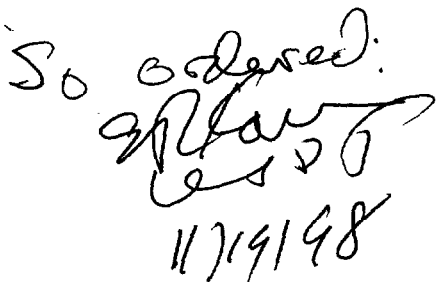 So ordered:
USDJ
11/19/98